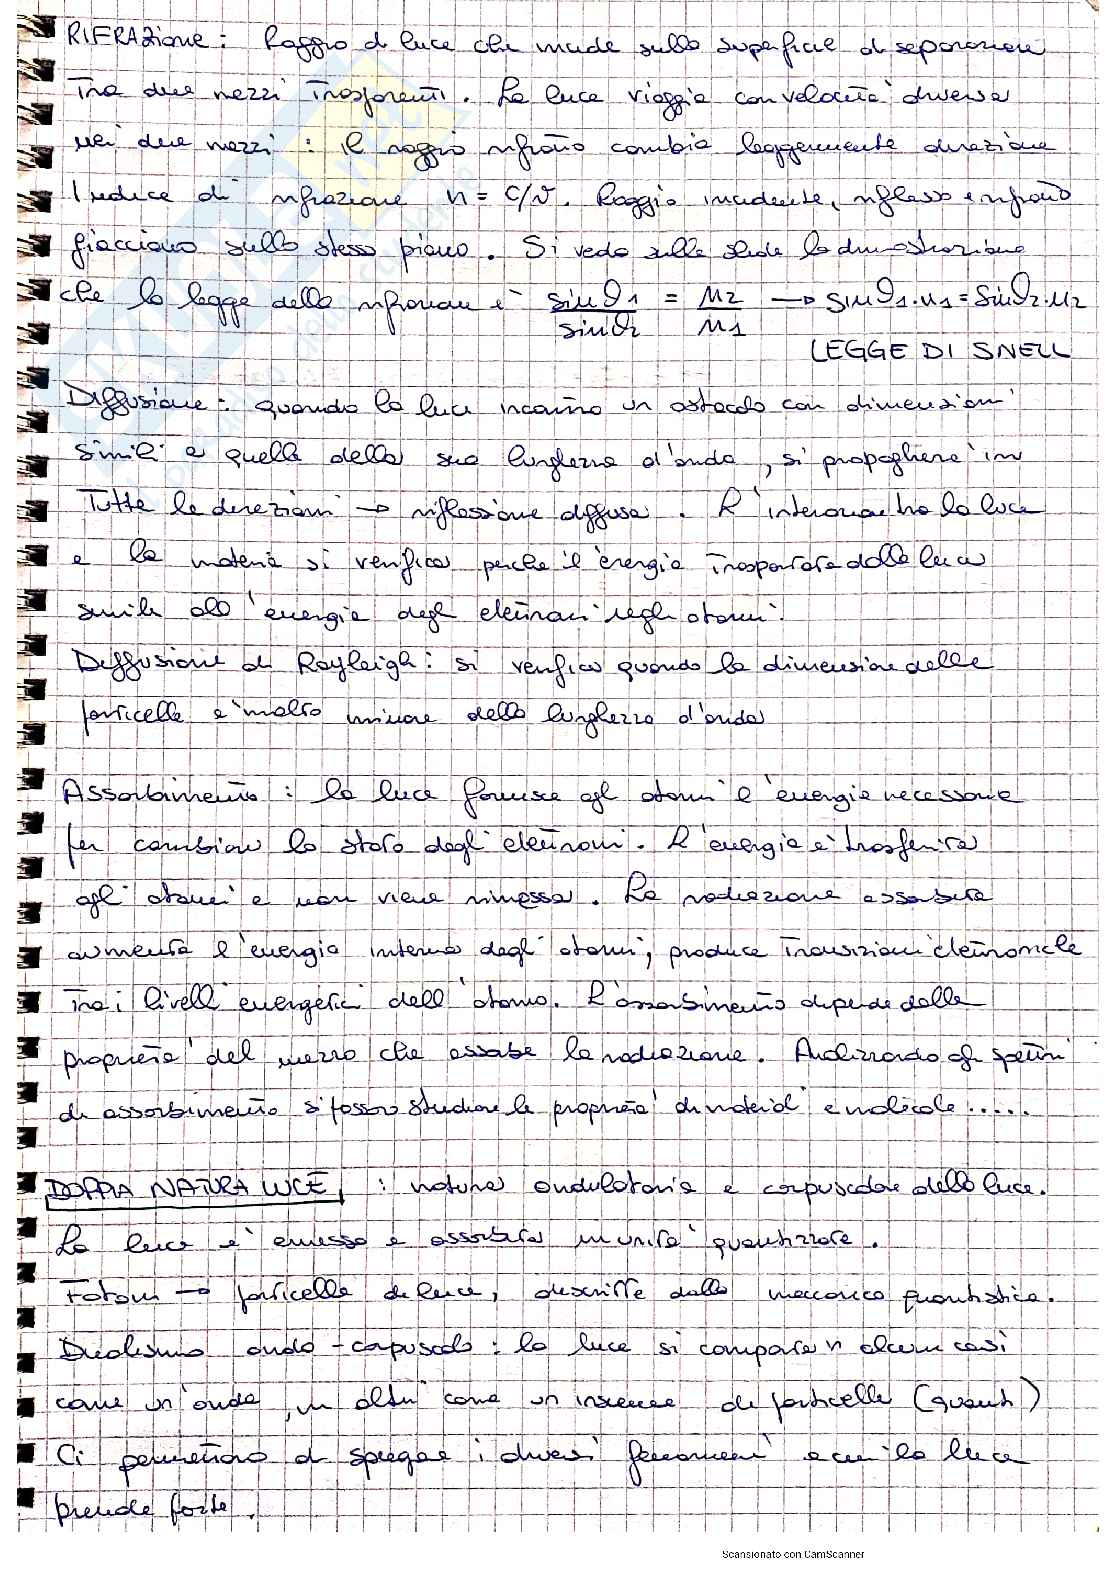 RIFRAZione: Raggio di luce che incide sulla superficie di separazione
Tra due mezzi Trasparenti. La luce viaggia con velocità diversa
nei due mezzi: il raggio rifratto cambia leggermente direzione
Indice di rifrazione n = c/v. Raggio incidente, riflesso e rifratto
giacciono sullo stesso piano. Si veda sulle slide la dimostrazione
che la legge della rifrazione è sinθ1/sinθ2 = n2/n1 → sinθ1·n1 = sinθ2·n2
LEGGE DI SNELL
Diffusione: quando la luce incontra un ostacolo con dimensioni
simili a quelle della sua lunghezza d'onda, si propagherà in
Tutte le direzioni → riflessione diffusa. L'interazione tra la luce
e la materia si verifica perché l'energia Trasportata dalla luce
simile all'energia degli elettroni negli atomi.
Diffusione di Rayleigh: si verifica quando la dimensione delle
particelle è molto minore della lunghezza d'onda
Assorbimento: la luce fornisce agli atomi l'energia necessaria
per cambiare lo stato degli elettroni. L'energia è trasferita
agli atomi e non viene rimessa. La radiazione assorbita
aumenta l'energia interna degli atomi, produce Transizioni elettroniche
Tra i livelli energetici dell'atomo. L'assorbimento dipende dalle
proprietà del mezzo che assorbe la radiazione. Analizzando gli spettri
di assorbimento si possono studiare le proprietà di materiali e molecole.....
DOPPIA NATURA LUCE: natura ondulatoria e corpuscolare della luce.
La luce è emessa e assorbita in unità quantizzate.
Fotoni → particelle di luce, descritte dalla meccanica quantistica.
Dualismo onda-corpuscolo: la luce si comporta in alcuni casi
come un'onda, in altri come un insieme di particelle (quanti)
Ci permettono di spiegare i diversi fenomeni a cui la luce
prende parte.
Scansionato con CamScanner